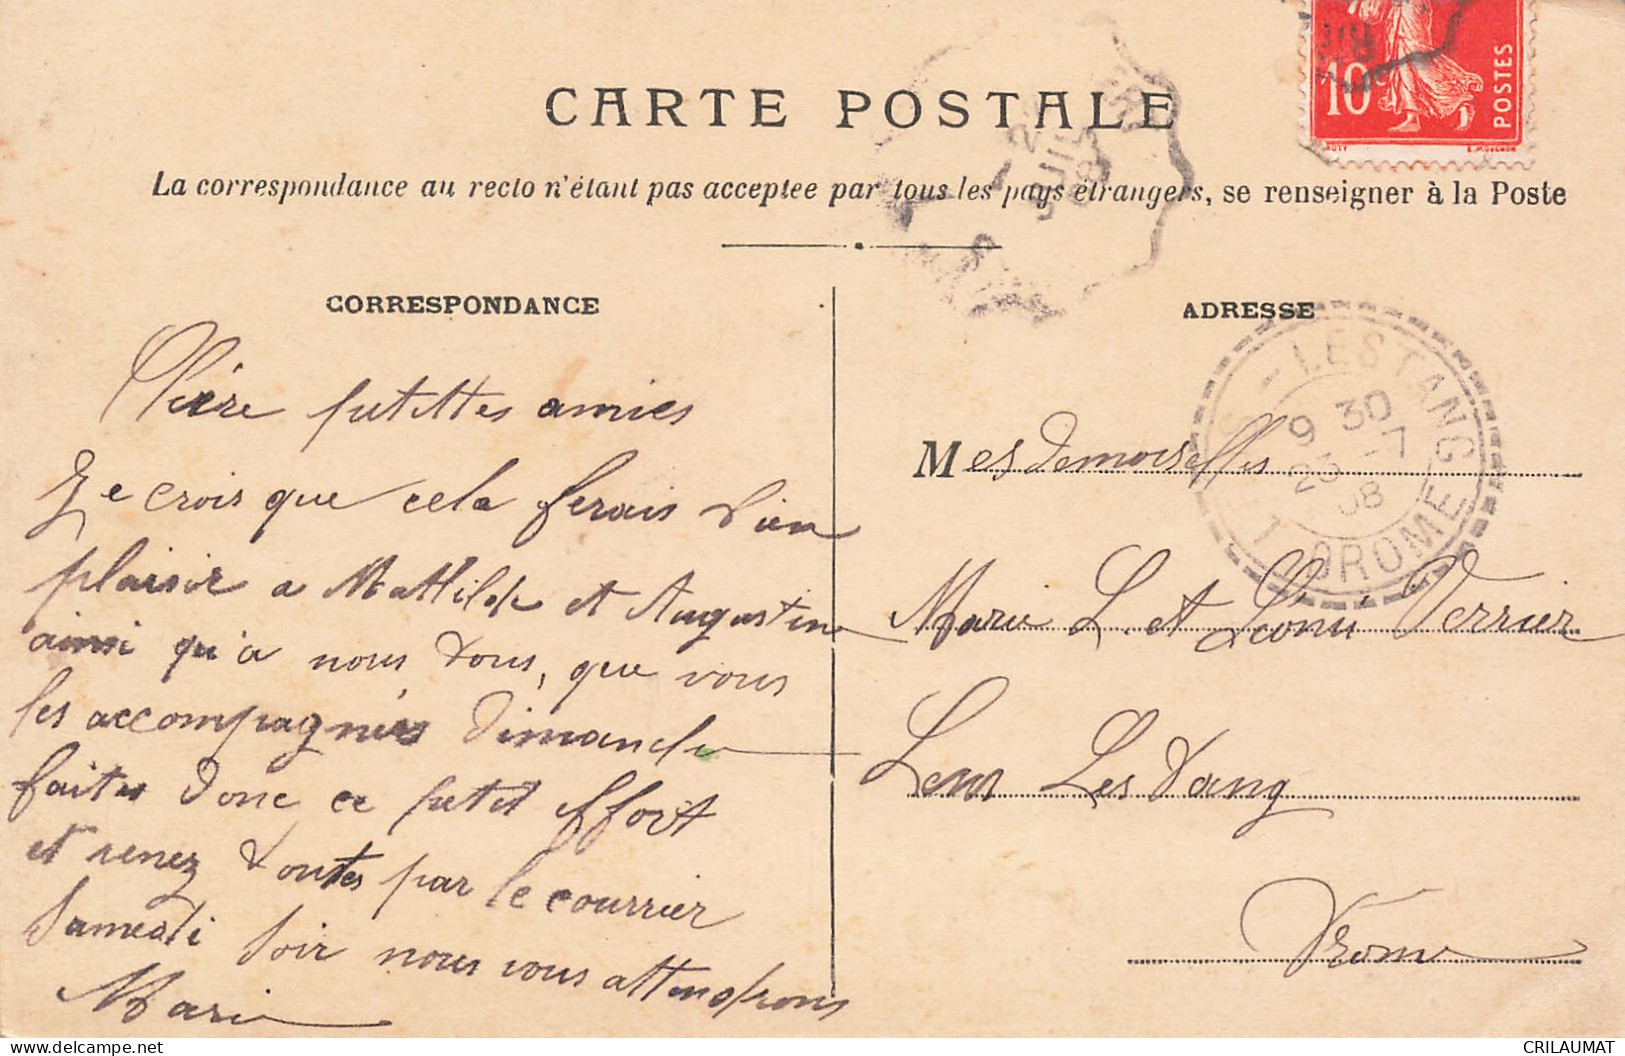 CARTE POSTALE
La correspondance au recto n'étant pas acceptée par tous les pays étrangers, se renseigner à la Poste
10c
POSTES
ROTY
E. MOUCHON
CORRESPONDANCE
Chère petittes amies
Je crois que cela ferais bien
plaisir a Mathilde et Augustine
ainsi qu'a nous tous, que vous
les accompagnies Dimanche
faites donc ce petit effort
et venez toutes par le courrier
Samedi soir nous vous attendrons
Marie
ADRESSE
LESTANG
9 30
23 -7
08
DROME
Mesdemoiselles
Marie L. et Léonie Verrier
Lens Lestang
Drome
CRILAUMAT